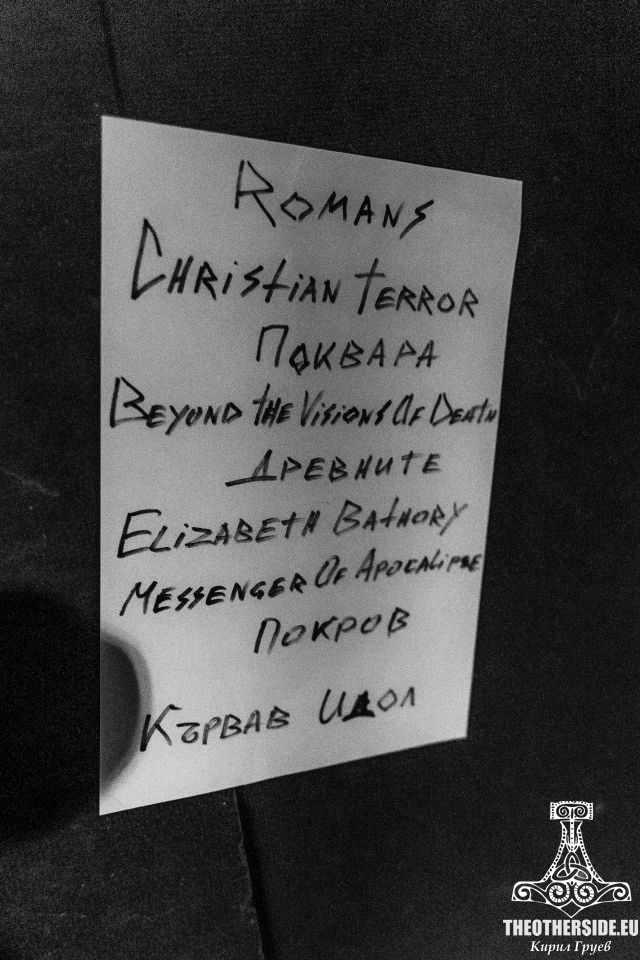 Romans
Christian Terror
Поквара
Beyond the Visions Of Death
Древните
Elizabeth Bathory
Messenger Of Apocalipse
Покров
Кървав Идол
THEOTHERSIDE.EU
Кирил Груев